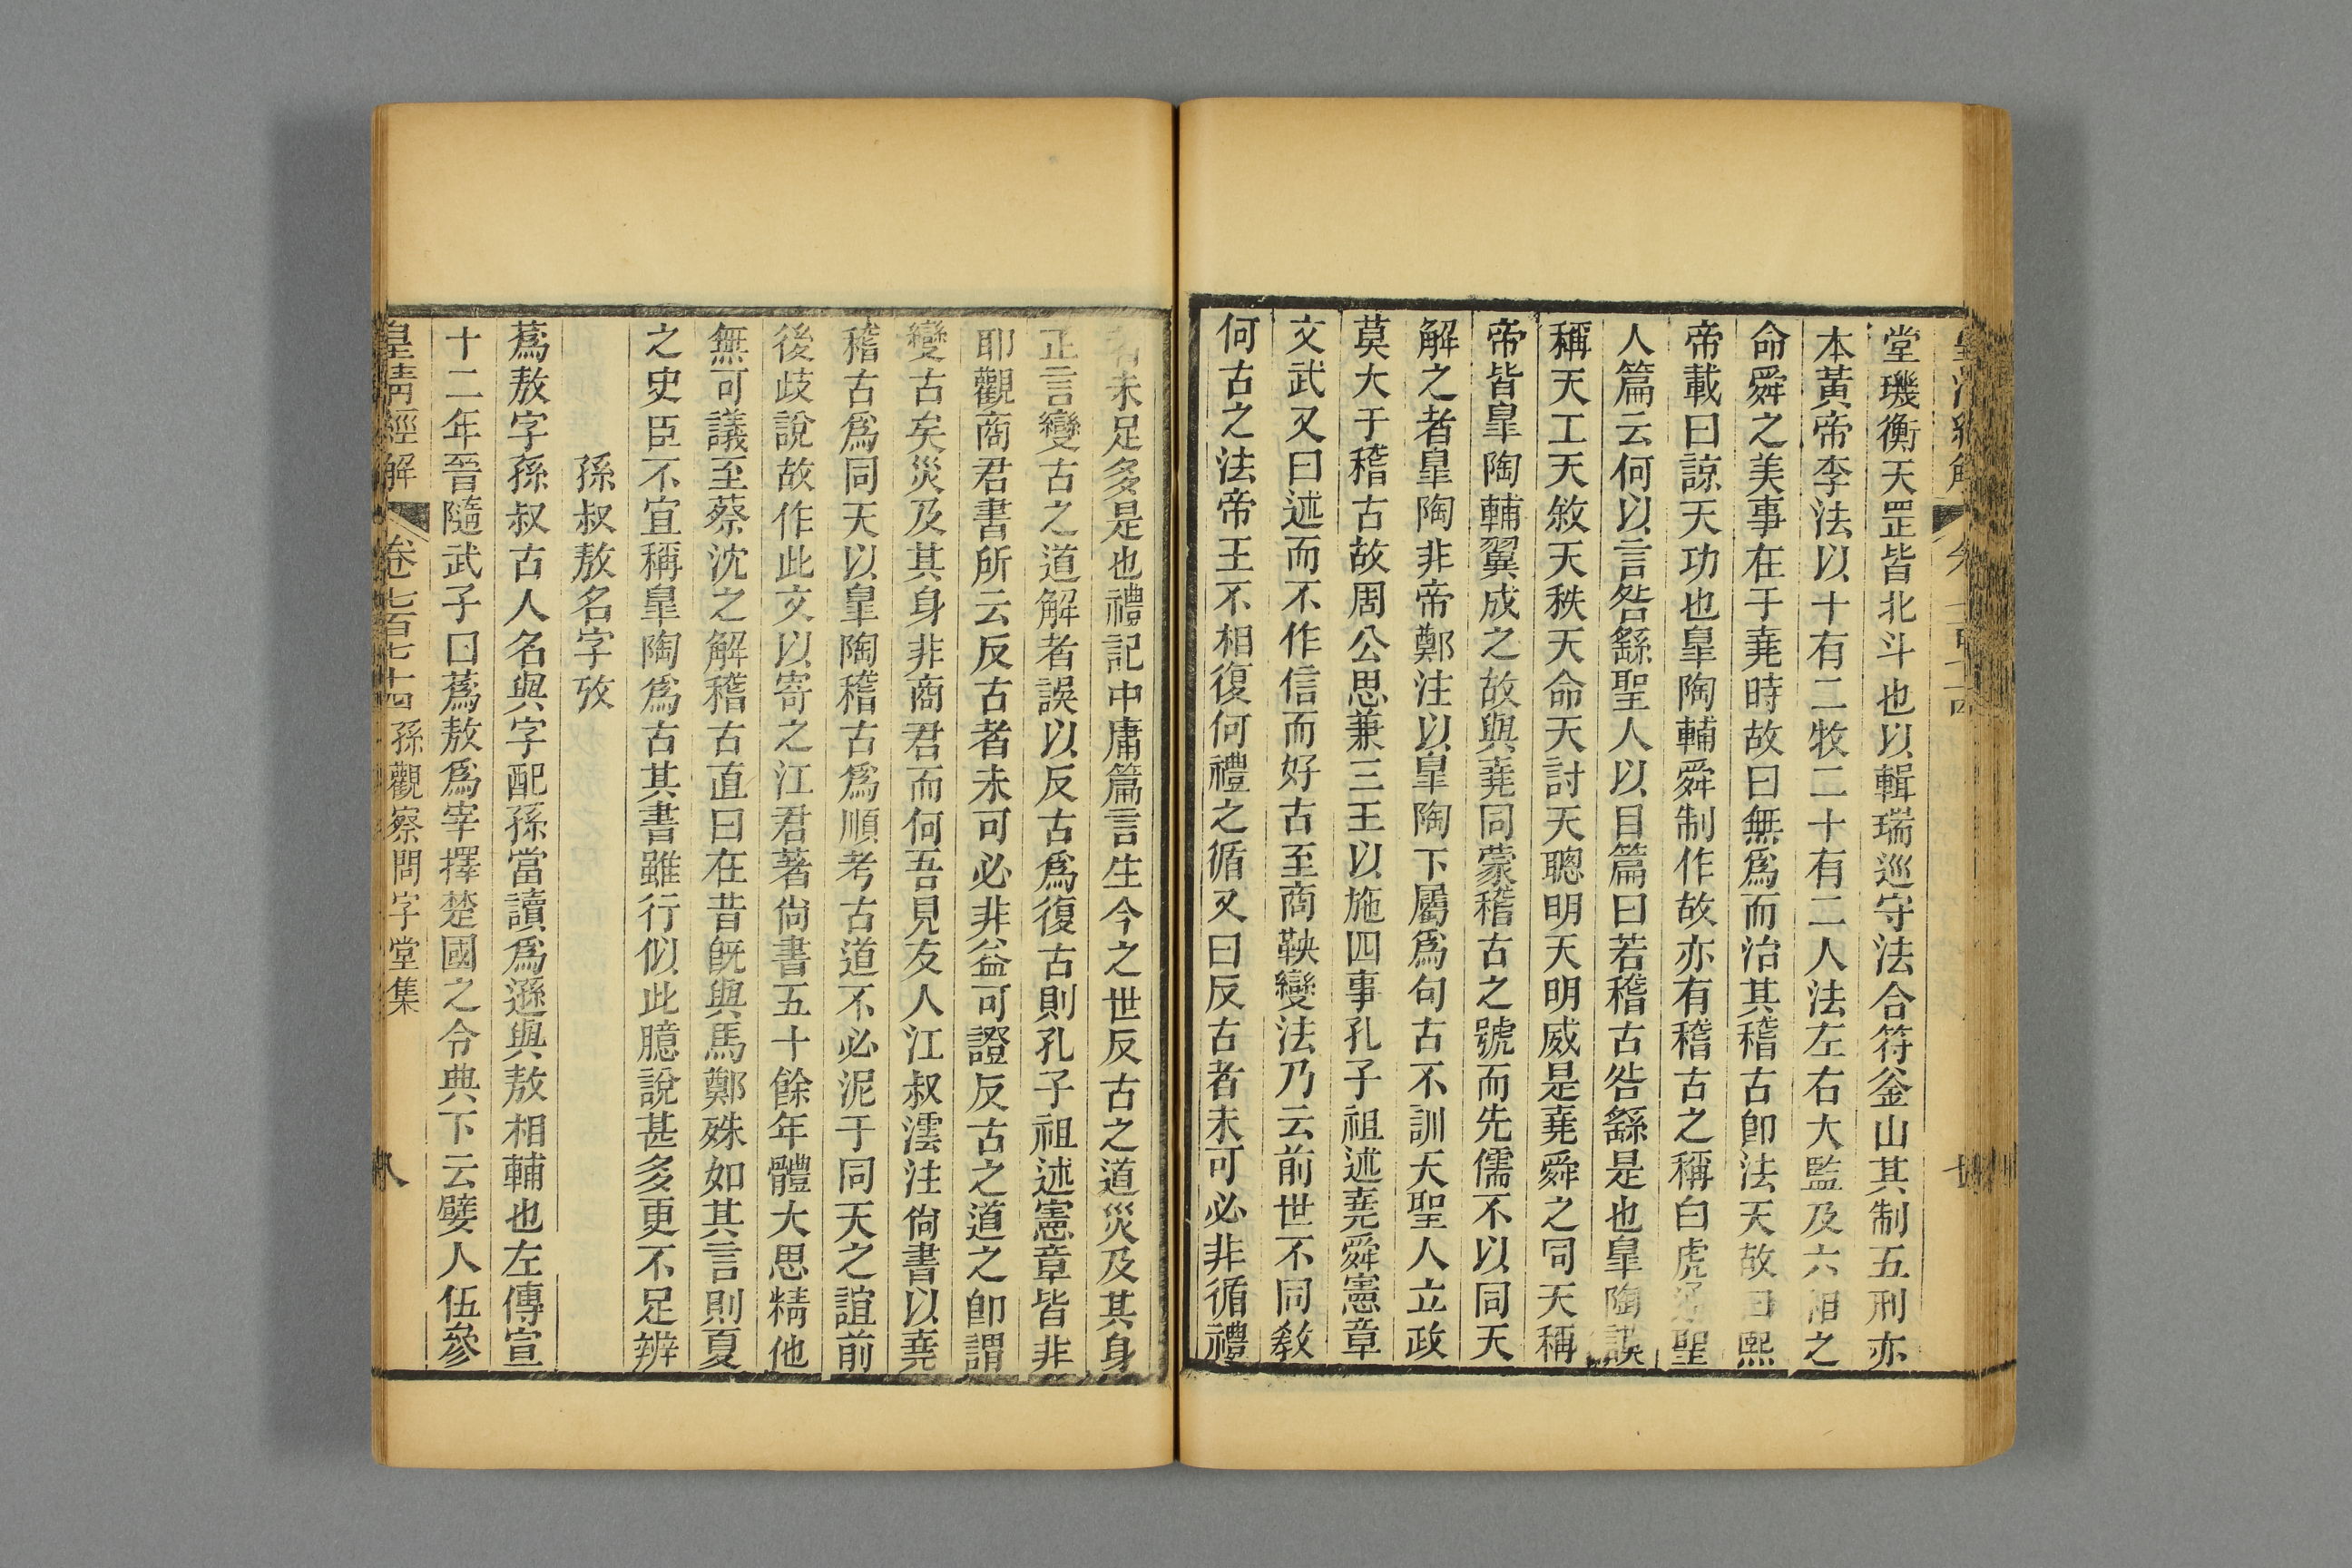 堂璣衡天罡皆北斗也以輯瑞巡守法合符釜山其制五刑亦
本黃帝李法以十有二牧二十有二人法左右大監及六相之
命舜之美事在于堯時故曰無爲而治其稽古卽法天故曰熙
帝載曰諒天功也皐陶輔舜制作故亦有稽古之稱白虎通聖
人篇云何以言咎繇聖人以目篇曰若稽古咎繇是也皐陶謨
稱天工天敘天秩天命天討天聰明天明威是堯舜之同天稱
帝皆皐陶輔翼成之故與堯同蒙稽古之號而先儒不以同天
解之者皐陶非帝鄭注以皐陶下屬爲句古不訓天聖人立政
莫大于稽古故周公思兼三王以施四事孔子祖述堯舜憲章
文武又曰述而不作信而好古至商鞅變法乃云前世不同敎
何古之法帝王不相復何禮之循又曰反古者未可必非循禮
者未足多是也禮記中庸篇言生今之世反古之道災及其身
正言變古之道解者誤以反古爲復古則孔子祖述憲章皆非
耶觀商君書所云反古者未可必非益可證反古之道之卽謂
變古矣災及其身非商君而何吾見友人江叔澐注尙書以堯
稽古爲同天以皐陶稽古爲順考古道不必泥于同天之誼前
後歧說故作此文以寄之江君著尙書五十餘年體大思精他
無可議至蔡沈之解稽古直曰在昔旣與馬鄭殊如其言則夏
之史臣不宜稱皐陶爲古其書雖行似此臆說甚多更不足辨
孫叔敖名字攷
蔿敖字孫叔古人名與字配孫當讀爲遜與敖相輔也左傳宣
十二年晉隨武子曰蔿敖爲宰擇楚國之令典下云嬖人伍參
皇淸經解 卷七百七十四 孫觀察問字堂集 八